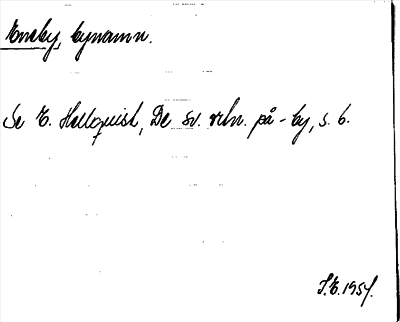 Eneby, bynamn.
Se E. Hellquist, De sv. ortn. på -by, s. 6.
S.E. 1954.